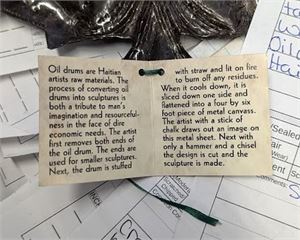 Oil drums are Haitian
artists raw materials. The
process of converting oil
drums into sculptures is
both a tribute to man's
imagination and resourceful-
ness in the face of dire
economic needs. The artist
first removes both ends of
the oil drum. The ends are
used for smaller sculptures.
Next, the drum is stuffed
with straw and lit on fire
to burn off any residues.
When it cools down, it is
sliced down one side and
flattened into a four by six
foot piece of metal canvas.
The artist with a stick of
chalk draws out an image on
this metal sheet. Next with
only a hammer and a chisel
the design is cut and the
sculpture is made.